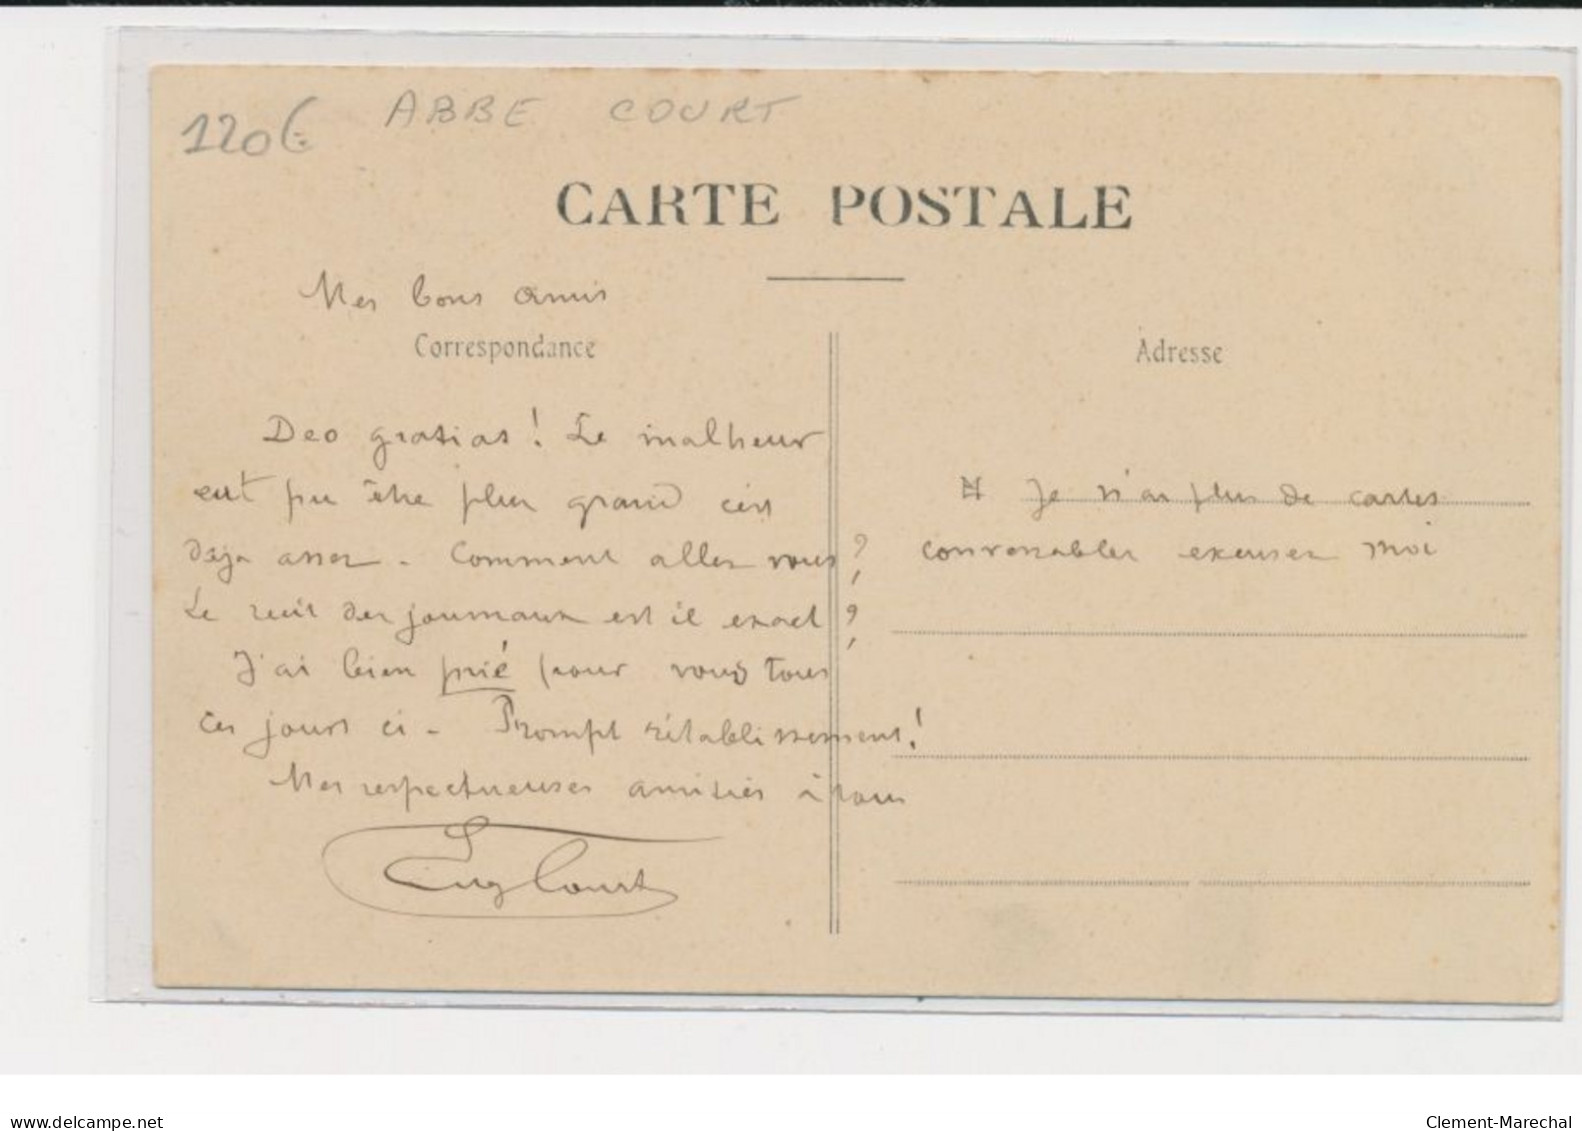 120€ ABBE COURT
CARTE POSTALE
Mes bons amis
Correspondance
Deo gratias ! Le malheur
eut pu être plus grand c'est
déjà assez - Comment allez vous ?
Le récit des journaux est il exact ?
J'ai bien prié pour vous tous
ces jours ci - Prompt rétablissement !
Mes respectueuses amitiés à tous
Eug Court
Adresse
N Je n'ai plus de cartes
convenables excusez moi
www.delcampe.net
Clement-Marechal